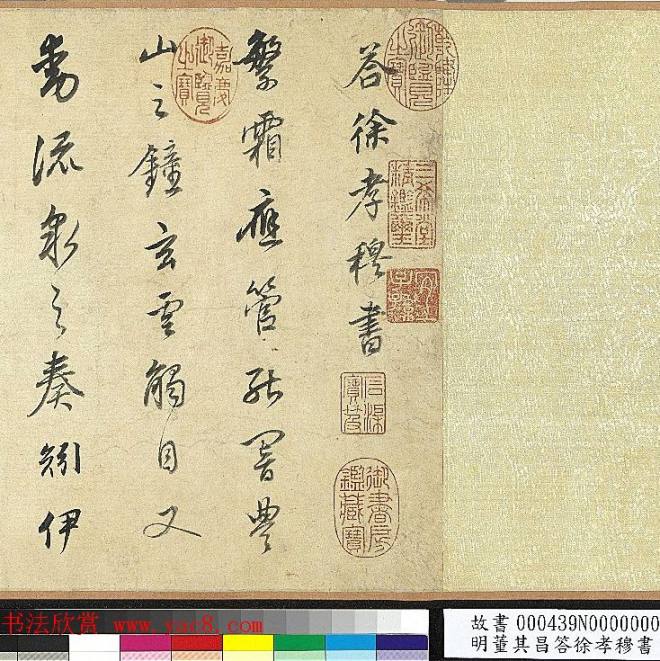 乾隆御覽之寶
三希堂精鑑璽
宜子孫
答徐孝穆書
石渠寶笈
御書房鑑藏寶
繁霜應管能響豐
嘉慶御覽之寶
山之鐘玄雲觸目又
動流泉之奏矧伊
书法欣赏 www.yac8.com
故書 000439N0000000
明董其昌答徐孝穆書